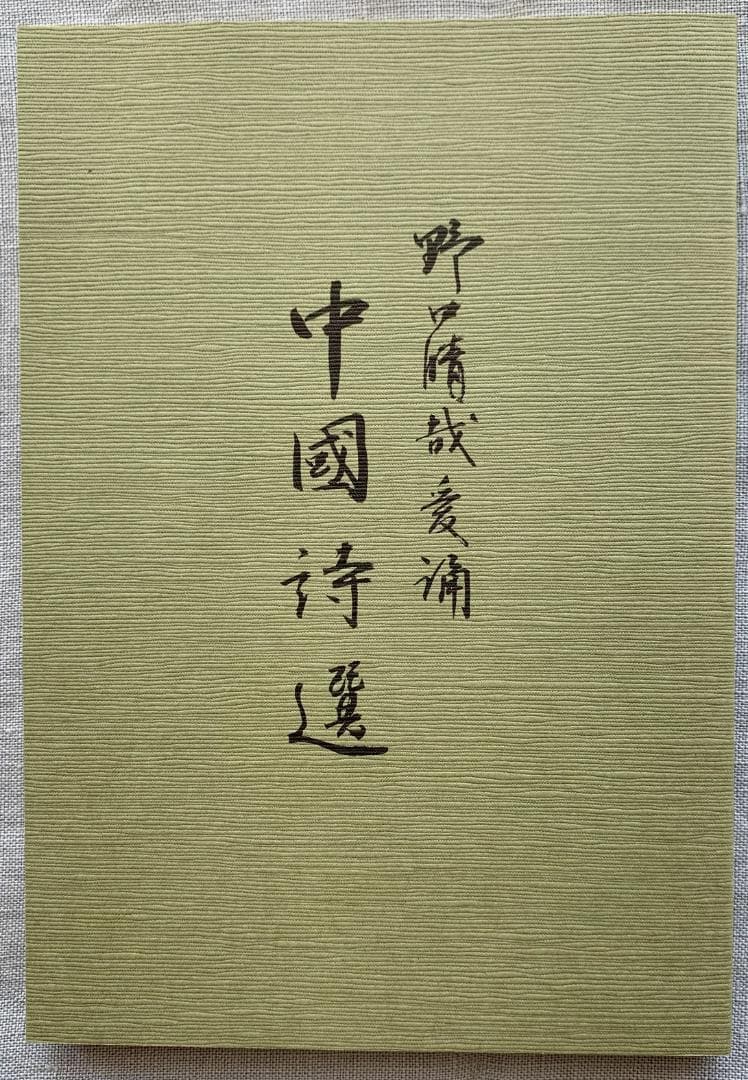 野口晴哉愛誦
中國詩選